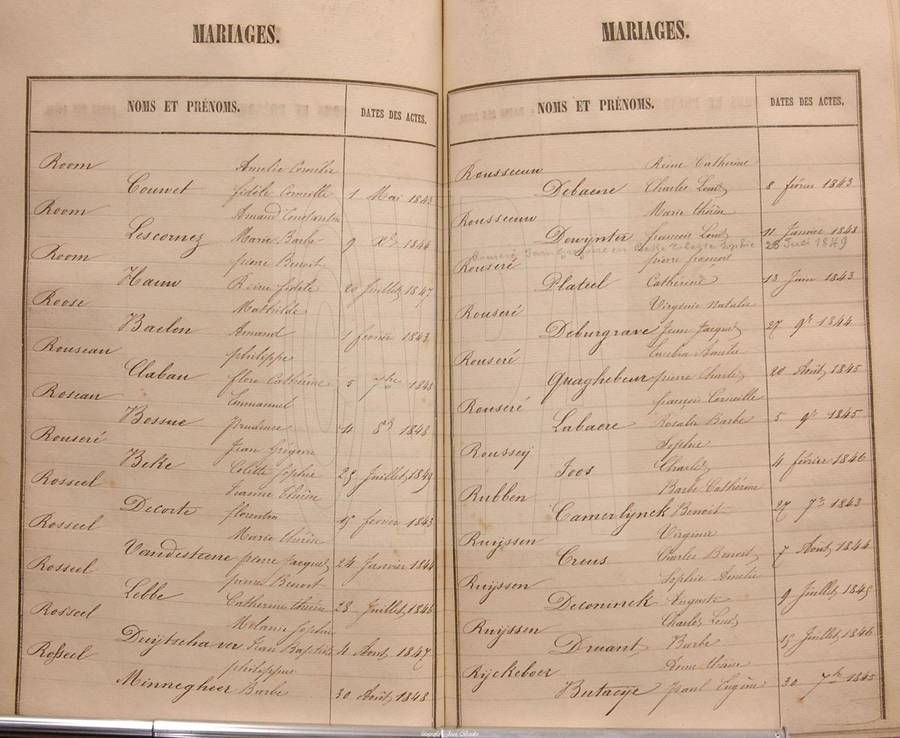 MARIAGES.
NOMS ET PRÉNOMS. DATES DES ACTES.
Room Amelie Cornélie
Couwet fidèle Corneille 1 Mai 1843
Room Amand Constantin
Lescornez Marie Barbe 9 1844
Room pierre Benoit
Hauw Reine fidèle 20 Juillet 1847
Roose Mathilde
Baelen Amand 1 fevrier 1843
Rouseau philippe
Clabau flore Cathérine 5 7bre 1848
Roseau Emmanuel
Bossue prudence 11 1848
Rouseré Jean Grégoire
Beke Colette Sophie Juillet 1849
Rosseel
Decorte florentin 15 fevrier 1843
Rosseel Marie thérèse
Vandesteene pierre Jacques 24 Janvier 1844
Rosseel pierre Benoit
Lebbe Catherine thérèse 28 Juillet 1846
Rosseel Melanie Sophie
Duytschaver Jean Baptiste 4 Aout 1847
Rosseel philippe
Minnegheer Barbe 30 Août 1848
MARIAGES.
NOMS ET PRÉNOMS. DATES DES ACTES.
Rousseeuw Reine Catherine
Debaene Charles Louis 8 février 1843
Rousseeuw Marie thérèse
Dewynter françois Louis 11 Janvier 1848
Rouseré Jean Grégoire en Beke Colette Sophie 1849
Rouseré pierre françois
Plateel Catherine 13 Juin 1843
Rouseré Virginie Natalie
Deburgrave Jean Jacques 27 1844
Rouseré Eusebia Amelie
Quaghebeur pierre Charles 20 Août 1845
Rouseré françois Corneille
Labaere Rosalie Barbe 5 1845
Roussey Sophie
Joos Charles 4 février 1846
Rubben Barbe Cathérine
Camerlynck Benoit 27 7bre 1843
Ruyssen Virginie
Creus Charles Benoit 7 Août 1844
Ruyssen Sophie Amelie
Deconinck Auguste 9 Juillet 1845
Ruyssen Charles Louis
Druant Barbe 15 Juillet 1846
Ryckeboer Anne thérèse
Butaeye paul Eugène 30 7bre 1845